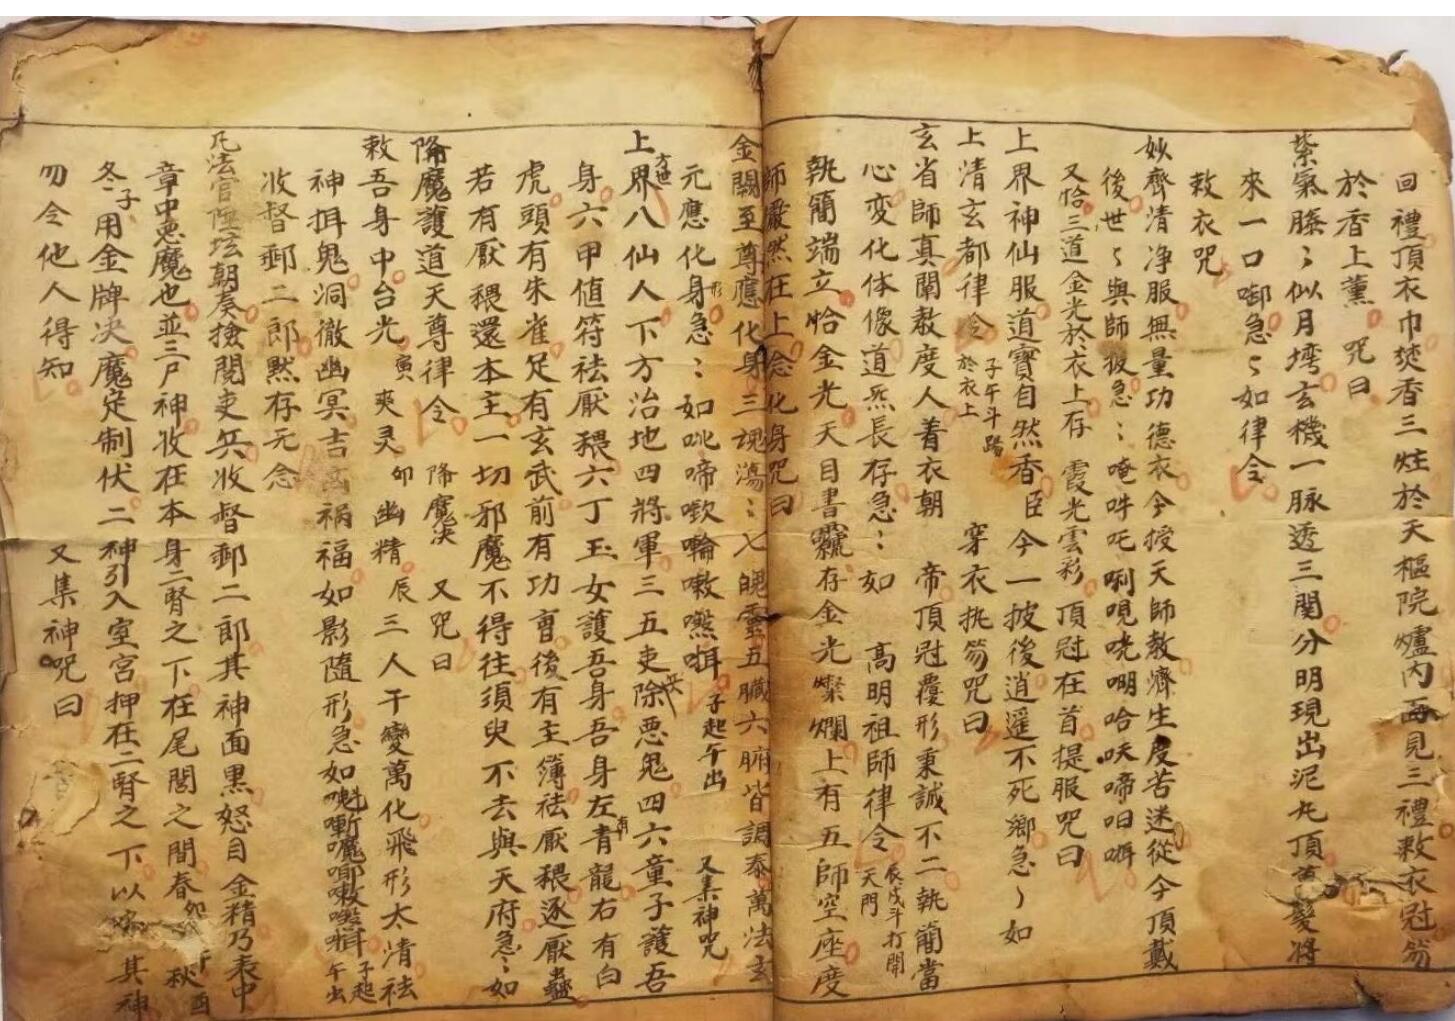 回禮頂衣巾焚香三炷於天樞院爐內再見三禮敕衣冠笏
於香上薰 咒曰
紫氣騰〻似月塆玄機一脉透三関分明現出泥丸頂 髮將
來一口啣急〻如律令
敕衣咒
妙齊清净服無量功德衣今授天師教濟生度苦迷從今頂戴
後世〻與師複急〻唵吽吒唎哯咣㗅哈㕭啼呬㗭
又恰三道金光於衣上存 霞光雲彩 頂冠在首提服咒曰
上界神仙服道寶自然香臣今一披後逍遥不死鄉急〻如
上清玄都律令 於衣上 子午斗踏 穿衣执笏咒曰
玄省師真闡教度人着衣朝 帝頂冠覆形秉誠不二執簡當
心變化体像道炁長存急〻如 高明祖師律令 天門 辰戌斗打開
執簡端立恰金光天目書 存金光燦爛上有五師空座度
師嚴然在上念化身咒曰
金闕至尊應化身三魂蕩〻七魄靈五臟六腑皆調泰萬法玄
元應化身形急〻如 啼 嗽 子起午出 又集神咒
上界方世八仙人下方治地四將軍三五吏除惡鬼四六童子護吾
身六甲值符祛厭穢六丁玉女護吾身吾身左有青龍右有白
虎頭有朱雀足有玄武前有功曹後有主簿祛厭穢逐厭蠱
若有厭穢還本主一切邪魔不得往須臾不去與天府急〻如
降魔護道天尊律令 降魔决 又咒曰
敕吾身中台光 寅 爽灵 卯 幽精 辰 三人千變萬化飛形太清祛
神揖鬼洞徹幽冥吉凶祸福如影隨形急如 子起午出
收督郵二郎黙存元念
凡法官陞坛朝奏撿閱吏兵收督郵二郎其神面黑怒目金精乃表中
章中恶魔也並三尸神收在本身二腎之下在尾閭之間春卯 午 秋酉
冬子用金牌决魔定制伏二神引入室宫押在二腎之下以 其神
勿令他人得知 又集神咒曰